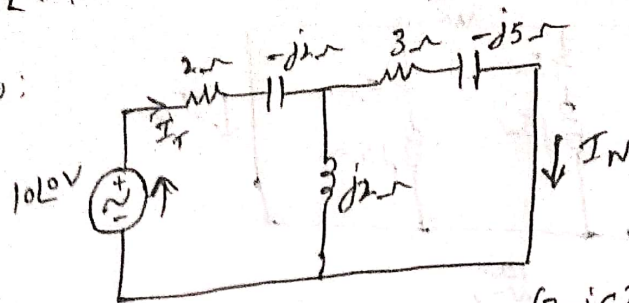 2Ω -j2Ω 3Ω -j5Ω
I_T
10∠0V
+
-
j2Ω
I_N